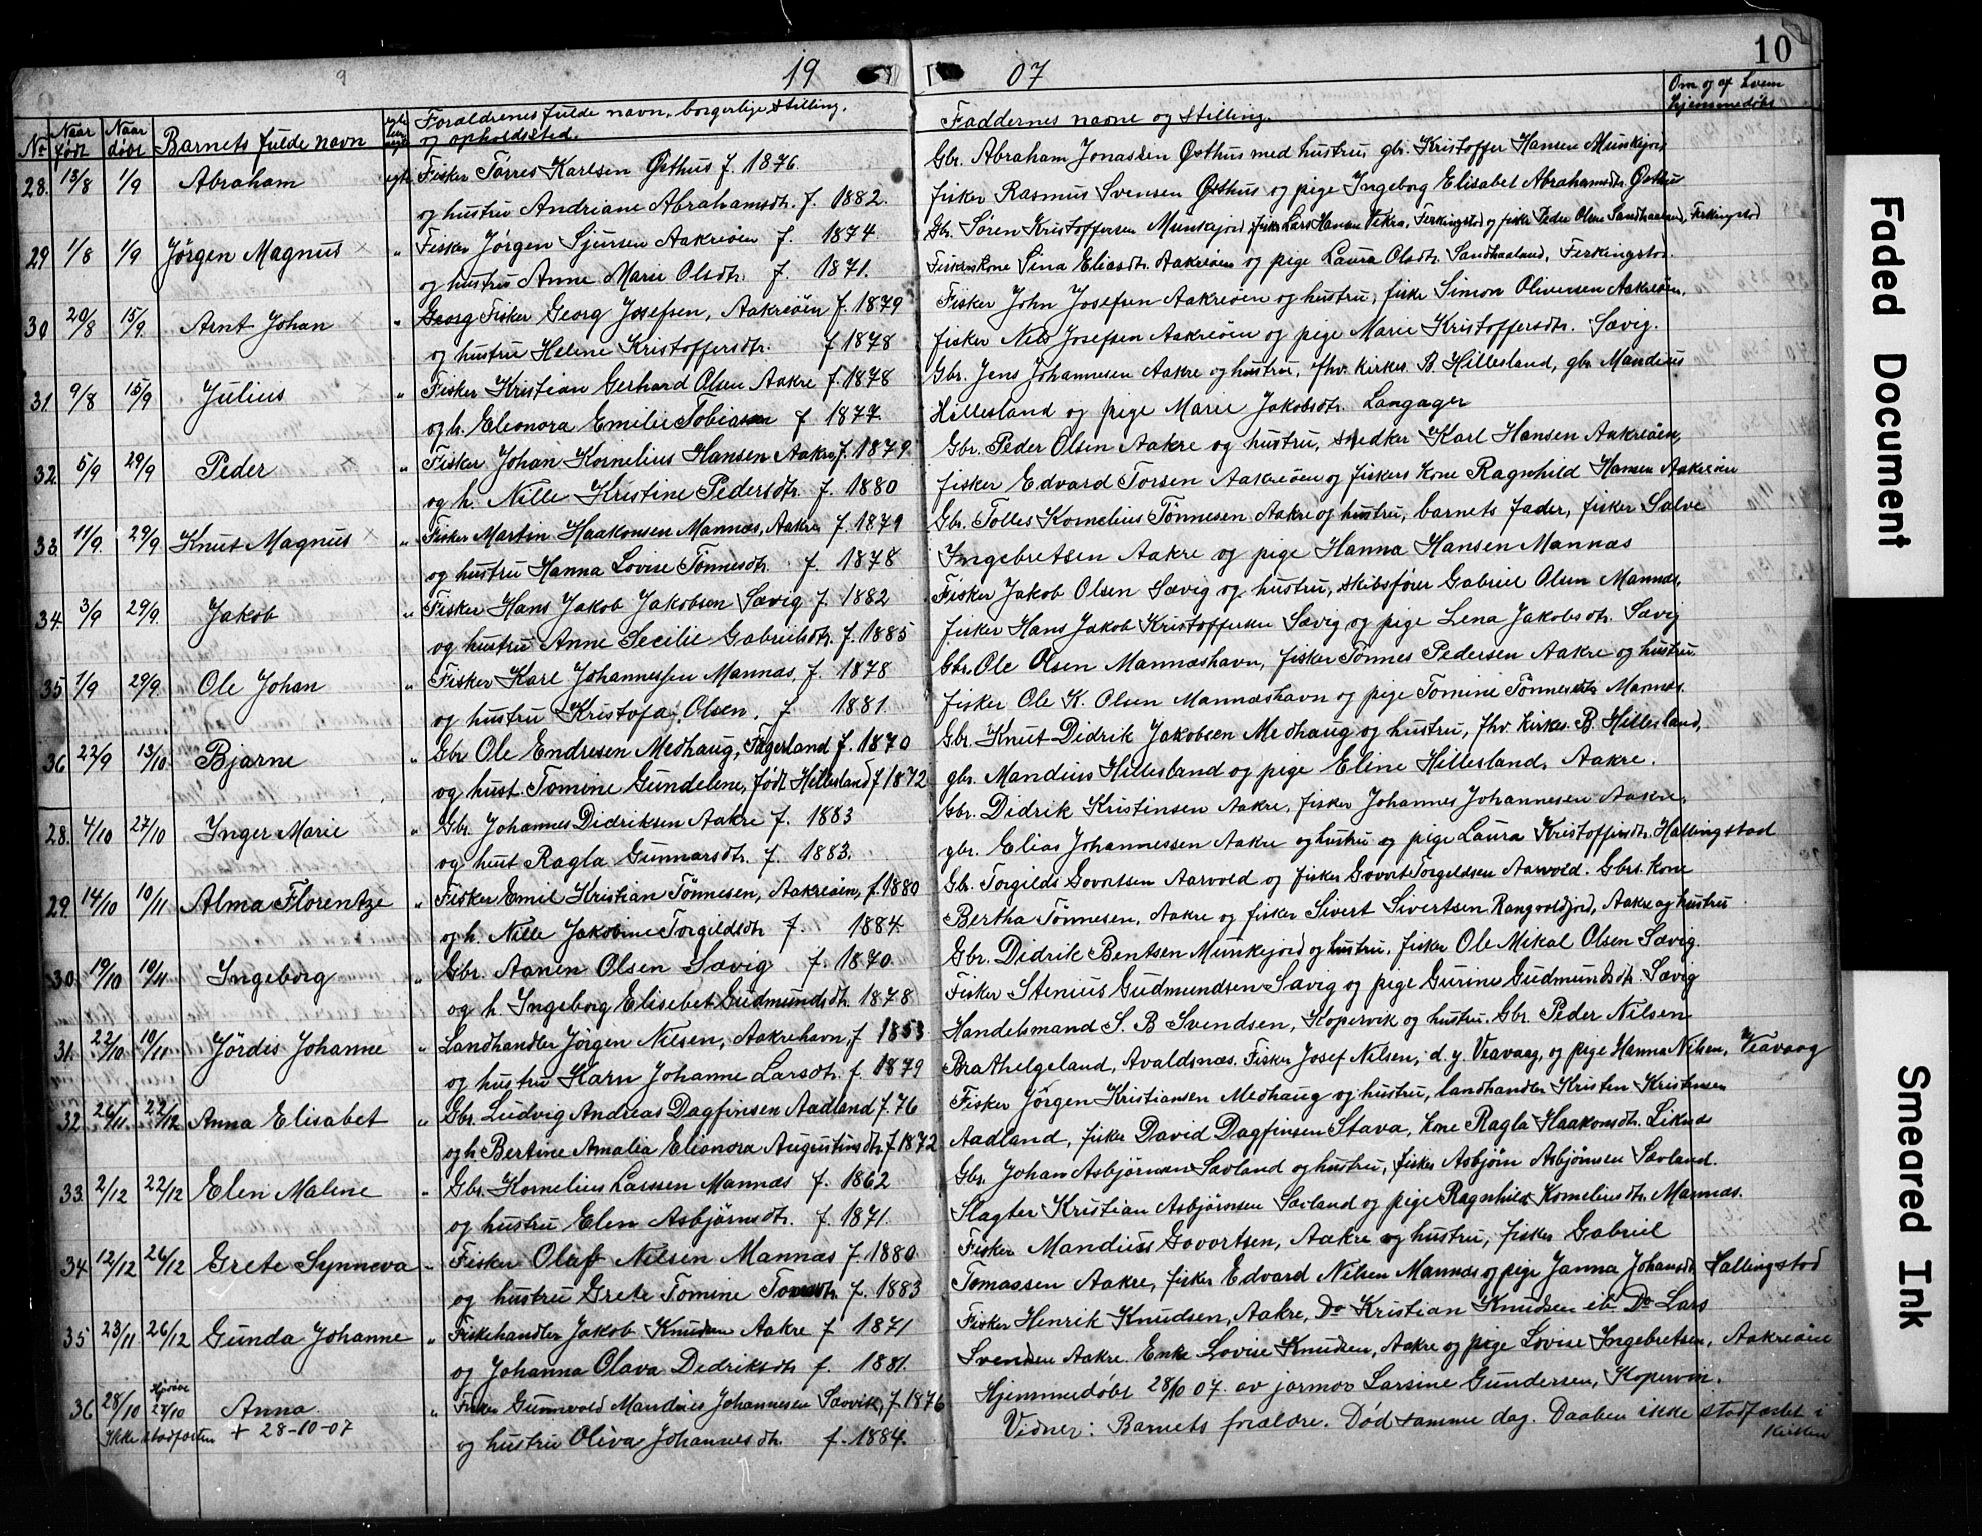 9
19
07
10
Nr
Naar født
Naar døbt
Barnets fulde navn
Forældrenes fulde navn, borgerlige stilling,
og opholdssted.
Faddernes navne og stilling.
Om og af hvem
hjemmedøbt
28. 13/8 1/9 Abraham egte Fisker Torres Karlsen Østhus f. 1876.
og hustru Andriane Abrahamsdtr. f. 1882.
Gbr. Abraham Jonassen Østhus med hustru gbr. Kristoffer Hansen Munkejord
fisker Rasmus Svensen Østhus og pige Ingeborg Elisabet Abrahamsdtr. Østhus
29 1/8 1/9 Jørgen Magnus × " Fisker Jørgen Sjursen Aakreøen f. 1874
og hustru Anne Marie Olsdtr. f. 1871.
Gbr. Søren Kristoffersen Munkejord, fisker Lars Hansen Vikra, Ferkingstad og fisker Peder Olsen Sandhaaland, Ferkingstad
Fiskerkone Sina Eliasdtr. Aakreøen og pige Laura Olsdtr. Sandhaaland, Ferkingstad.
30 20/8 15/9. Arnt Johan " Georg Fisker Georg Josefsen, Aakreøen f. 1879
og hustru Helene Kristoffersdtr. f 1878
Fisker John Josefsen Aakreøen og hustru, fisker Simon Oliversen Aakreøen,
fisker Nels Josefsen Aakreøen og pige Marie Kristoffersdtr. Sævig.
31. 9/8 15/9 Julius " Fisker Kristian Gerhard Olsen Aakre f. 1878
og h. Eleonora Emilie Tobiasen f 1877.
Gbr. Jens Johannesen Aakre og hustru, fhv. kirkes. B. Hillesland, gbr Mandius
Hillesland og pige Marie Jakobsdtr. Langager
32. 5/9 29/9 Peder " Fisker Johan Kornelius Hansen Aakre f. 1879.
og h. Nille Kristine Pedersdtr. f. 1880
Gbr. Peder Olsen Aakre og hustru, snedker Karl Hansen Aakreøen,
fisker Edvard Torsen Aakreøen og fiskers kone Ragnhild Hansen Aakreøen
33. 11/9. 29/9 Knut Magnus × " Fisker Martin Haakonsen Mannes, Aakre f. 1879
og hustru Hanna Lovise Tønnesdtr. f. 1878
Gbr. Tolles Kornelius Tønnesen Aakre og hustru, barnets fader, fisker Salve
Ingebretsen Aakre og pige Hanna Hansen Mannæs
34. 3/9 29/9. Jakob " Fisker Hans Jakob Jakobsen Sævig f. 1882
og hustru Anne Secilie Gabrielsdtr. f. 1885
Fisker Jakob Olsen Sævig og hustru, skibsfører Gabriel Olsen Mannæs,
fisker Hans Jakob Kristoffersen Sævig og pige Lena Jakobsdtr. Sævig
35 1/9 29/9. Ole Johan " Fisker Karl Johannessen Mannæs, f. 1878
og hustru Kristofa Olsen, f 1881.
Gbr. Ole Olsen Mannæshavn, fisker Tønnes Pedersen Aakre og hustru
fisker Ole K. Olsen Mannæshavn og pige Tomine Tønnesdtr. Mannæs.
36 22/9 13/10. Bjarne " Gbr Ole Endresen Medhaug, Fagerland f. 1870
og hust. Tomine Gundelene, født Hillesland f 1872
Gbr. Knut Didrik Jakobsen Medhaug og hustru, fhv. kirkes. B. Hillesland,
gbr. Mandius Hillesland og pige Eline Hillesland, Aakre.
28. 4/10 27/10 Inger Marie " Gbr. Johannes Didriksen Aakre f. 1883
og hust Ragla Gunnarsdtr. f. 1883.
Gbr. Didrik Kristinsen Aakre, fisker Johannes Johannesen Aakre,
gbr. Elias Johannessen Aakre og hustru og pige Laura Kristoffersdtr. Hallingstad
29. 14/10 10/11 Alma Florentze " Fisker Emil Kristian Tønnesen, Aakreøen, f. 1880
og h. Nille Jakobine Torgildsdtr f. 1884.
Gbr. Torgilds Govortsen Aarvold og fisker Govort Torgildsen Aarvold. Gbrs. kone
Bertha Tønnesen, Aakre og fisker Sivert Sivertsen Rangvoldjord, Aakre og hustru
30. 19/10 10/11 Ingeborg " Gbr. Aanen Olsen Sævig f. 1870
og h. Ingeborg Elisebet Gudmundsdtr. 1878
Gbr. Didrik Bentsen Munkejord og hustru, fisker Ole Mikal Olsen Sævig.
Fisker Stenius Gudmundsen Sævig og pige Gurine Gudmundsdtr. Sævig
31. 22/10 10/11 Jørdis Johanne " Landhandler Jørgen Nilsen, Aakrehavn, f 1853
og hustru Karn Johanne Larsdtr. f. 1879
Handelsmand S. B Svendsen, Kopervik og hustru. Gbr. Peder Nilsen
Brathelgeland, Avaldsnæs. Fisker Josef Nilsen, d. y. Veavaag, og pige Hanna Nilsen, Veavaag
32 26/11. 22/12 Anna Elisabet " Gbr. Ludvig Andreas Dagfinsen Aadland f. 76
og h. Bertine Amalia Elionora Augustinusdtr. f 1872
Fisker Jørgen Kristiansen Medhaug og hustru, landhandler Kristen Kristensen
Aadland, fisker David Dagfinsen Stava, kone Ragla Haakonsdtr. Liknes
33. 2/12 22/12 Elen Malene " Gbr. Kornelius Larssen Mannæs f. 1862
og hustru Elen Asbjørnsdtr. f. 1871.
Gbr. Johan Asbjørnsen Sævland og hustru, fisker Asbjørn Asbjørnsen Sævland.
Slagter Kristian Asbjørnsen Sævland og pige Ragnhild Korneliusdtr. Mannæs.
34 12/12 26/12 Grete Synneva " Fisker Olaf Nilsen Mannæs f. 1880
og hustru Grete Tomine f. 1883
Fisker Mandius Govortsen, Aakre og hustru, fisker Gabriel
Tomassen Aakre, fisker Edvard Nilsen Mannæs og pige Janna Johansdtr Hallingstad
35 23/11 26/12 Gunda Johanne " Fiskehandler Jakob Knudsen Aakre f 1871
og Johanna Olava Dedriksdtr f. 1881.
Fisker Henrik Knudsen, Aakre, Do Kristian Knudsen ib. Do Lars
Svendsen Aakre. Enke Lovise Knudsen, Aakre og pige Lovise Ingebretsen, Aakreøen
36 28/10 28/10 Anna. " Fisker Gunnvald Mandius Johannesen Sævik, f. 1876
Ikke stadfæsten + 28-10-07
og hustru Oliva Johannesdtr. f. 1884.
Hjemmedøbt 28/10 07. av jormor Larsine Gundersen, Kopervik.
Vidner: Barnets forældre. Død samme dag. Daaben ikke stadfæstet i
kirken
Faded Document
Smeared Ink